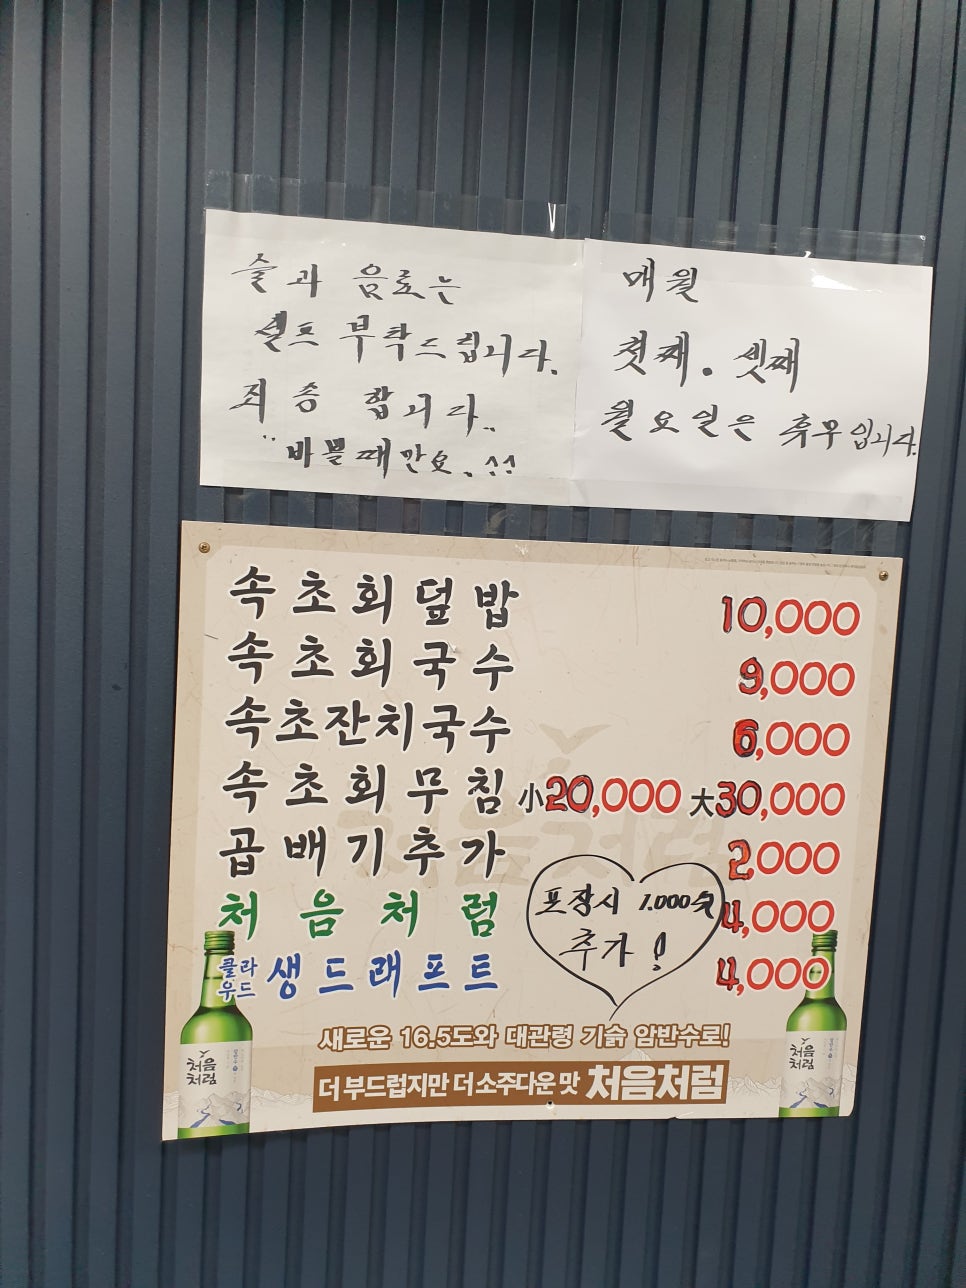 술과 음료는
셀프 부탁드립니다.
죄송합니다..
"바쁠때만요.^^
매월
첫째. 셋째
월요일은 휴무입니다.
속초회덮밥 10,000
속초회국수 9,000
속초잔치국수 6,000
속초회무침 小20,000 大30,000
곱배기추가 2,000
처음처럼 4,000
클라우드 생드래프트 4,000
포장시 1.000
추가!
새로운 16.5도와 대관령 기슭 암반수로!
더 부드럽지만 더 소주다운 맛 처음처럼
처음
처럼
처음
처럼